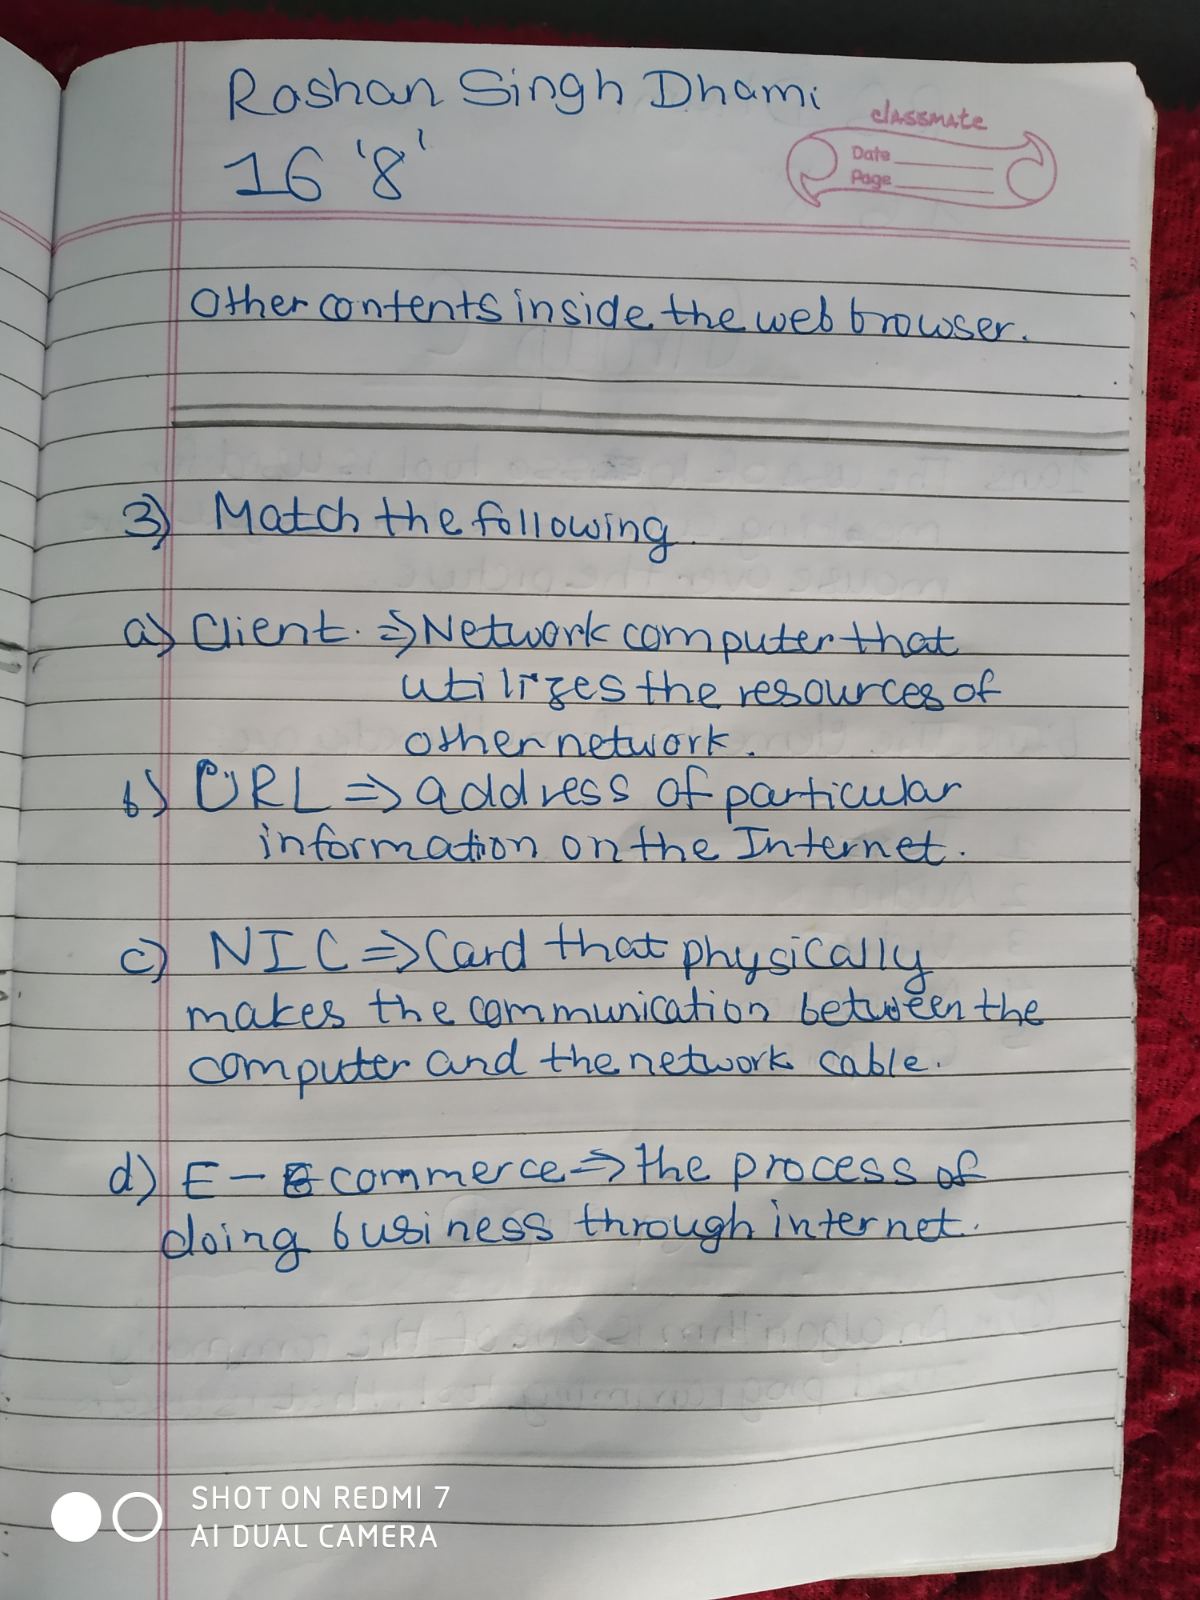 Roshan Singh Dhami
classmate
16 '8'
Date
Page
Other contents inside the web browser.
3) Match the following.
a) Client. ⇒ Network computer that
utilizes the resources of
other network.
b) URL ⇒ address of particular
information on the Internet.
c) NIC ⇒ Card that physically
makes the communication between the
computer and the network cable.
d) E - commerce ⇒ the process of
doing business through internet.
SHOT ON REDMI 7
AI DUAL CAMERA